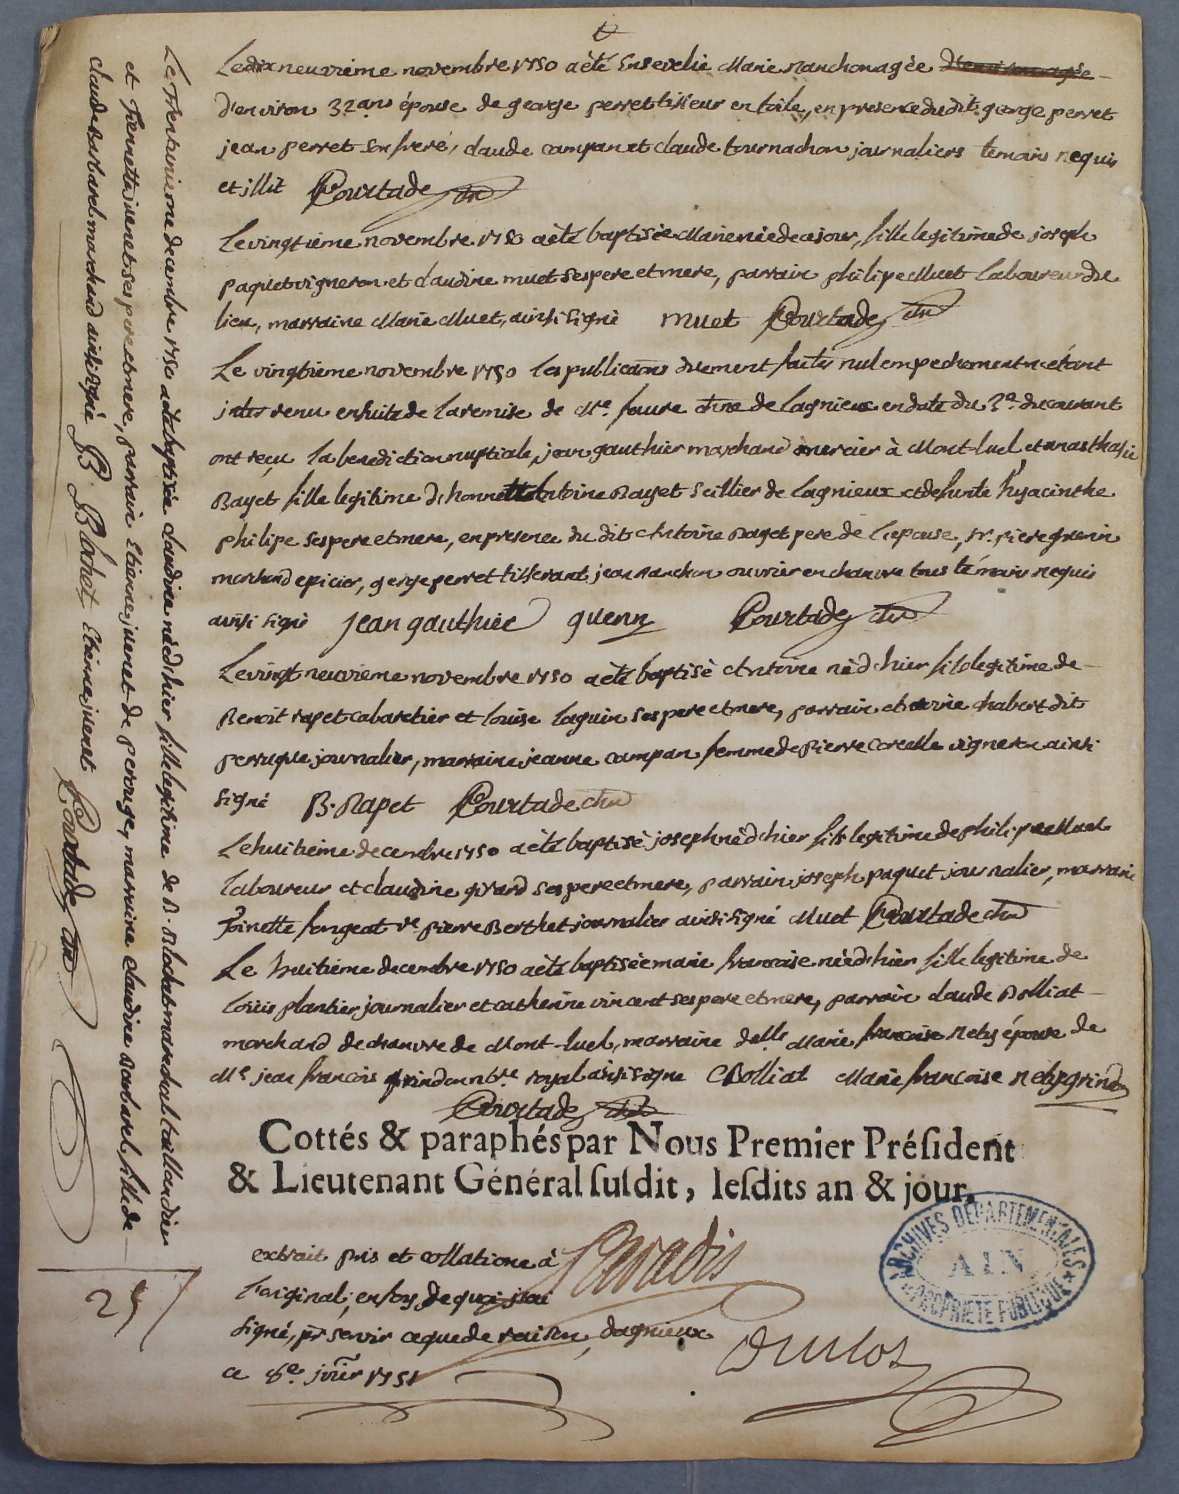 Le dix neuvieme novembre 1750 a été Ensevelie Marie nanchon agée
d'environ 32 ans épouse de george perret tisseur en toile, en presence du dit george perret
jean perret son frere, claude campan et claude tournachon journaliers temoins requis
et illit Courtade curé
Le vingtieme novembre 1750 a été baptisée Marie née de ce jour, fille legitime de joseph
paquet vigneron et claudine muet ses pere et mere, parrain philipe Muet laboureur du
lieu, marraine Marie Muet, ainsi signé muet Courtade curé
Le vingtieme novembre 1750 les publications duement faites nul empechement n'etant
intervenu ensuite de la remise de Mre. faure curé de lagnieux en date du 3e. du courant
ont reçu la benediction nuptiale, jean gauthier marchand mercier à Mont-luel et anasthasie
Bayet fille legitime d'honnette Antoine Bayet Seillier de lagnieux et defunte hyacinthe
philipe ses pere et mere, en presence du dit Antoine Bayet pere de l'epouse, sr. piere guenin
marchand epicier, george perret tisserant, jean nanchon ouvrier en chanvre tous témoins requis
ainsi signé jean gauthier guenin Courtade curé
Le vingt neuvieme novembre 1750 a été baptisé Antoine né d'hier fils legitime de
Benoit rapet cabaretier et louise laguin ses pere et mere, parrain antoine chabert dit
perruque journalier, marraine jeanne campan femme de pierre corealle vigneron ainsi
signé B. Rapet Courtade curé
Le huitieme decembre 1750 a été baptisé joseph né d'hier fils legitime de philipe Muet
laboureur et claudine girard ses pere et mere, parrain joseph paquet journalier, marraine
Toinette fongeat ve. pierre Berthet journalier ainsi signé Muet Courtade curé
Le huitieme decembre 1750 a été baptisée marie francoise née d'hier fille legitime de
louis plantier journalier et catherine vincent ses pere et mere, parrain claude Bolliat
marchand de chanvre de Mont-luel, marraine delle Marie francoise Neby épouse de
Me. jean francois grind nre. royal ainsi signé C Bolliat Marie francoise neby grind
Courtade curé
Cottés & paraphés par Nous Premier Préſident
& Lieutenant Général ſuſdit, leſdits an & jour.
extrait pris et collationé à Paradis
l'original, en foy de quoi j'ai
signé, pr servir ce que de raison, dagnieux
ce 8e. jvier 1751
ARCHIVES DÉPARTEMENTALES
AIN
PROPRIÉTÉ PUBLIQUE
Le Trente unieme decembre 1750 a été baptisée claudine née d'hier fille legitime de B. Blodet marechal taillandier
et Fiennette juenet ses pere et mere, parrain Etienne juenet de perouge, marraine claudine Barbarel fille de
claude Barbarel marchand ainsi signé B. Blodet Etiene juenet Courtade curé